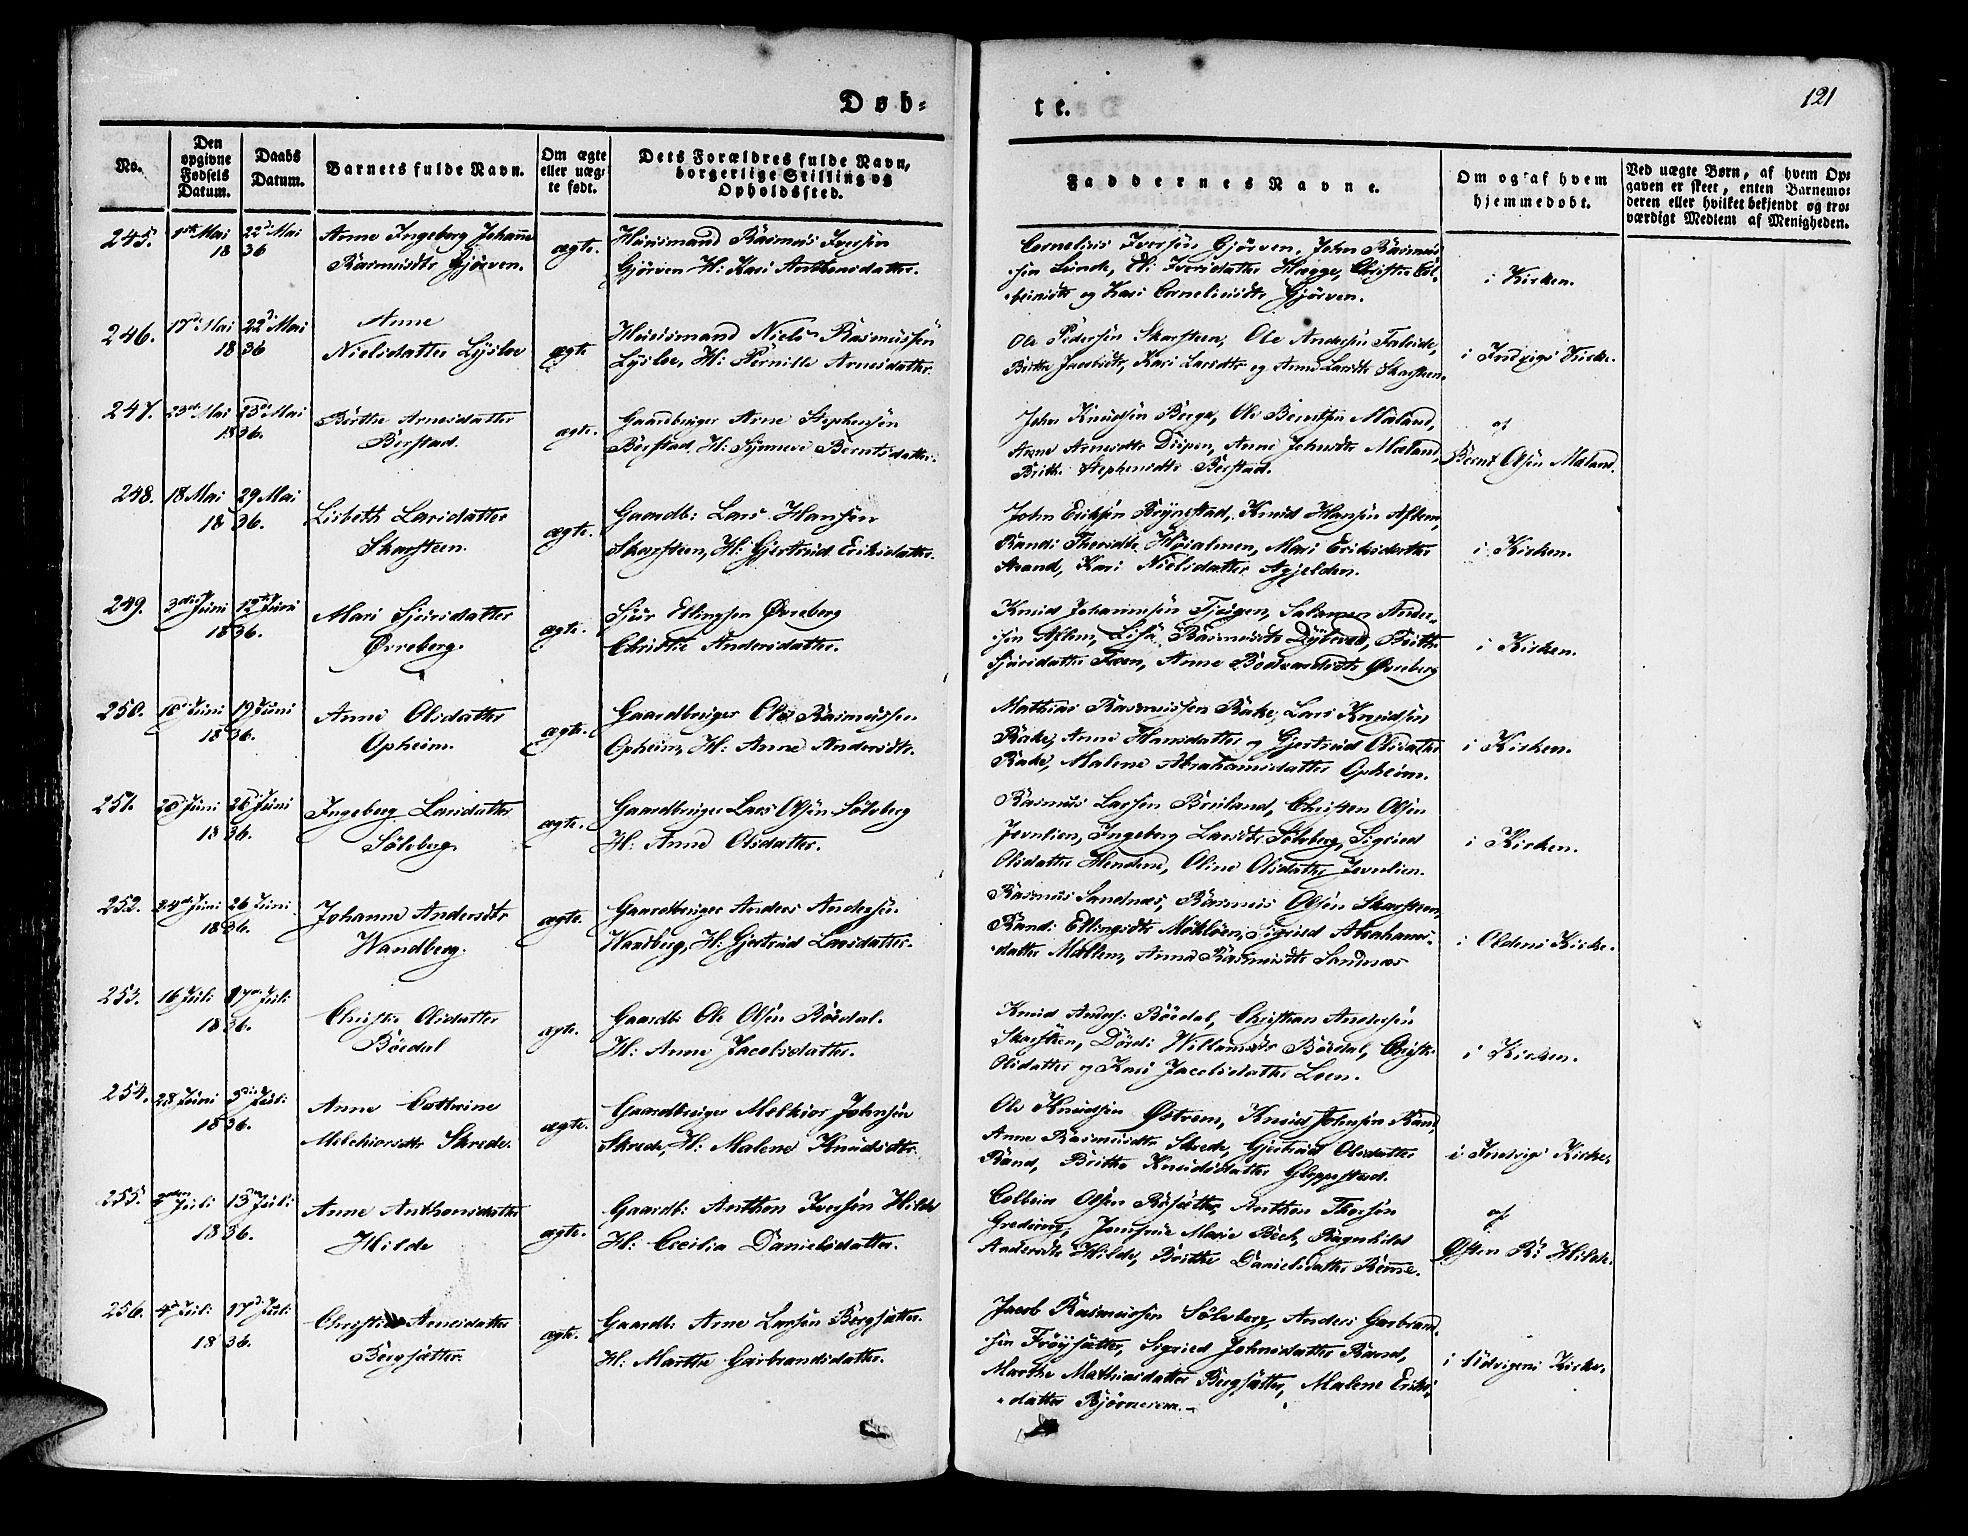 Døb-
te.
121
No.
Den opgivne Fødsels Datum.
Daabs Datum.
Barnets fulde Navn.
Om ægte eller uægte født.
Dets Forældres fulde Navn, borgerlige Stilling og Opholdssted.
Faddernes Navne.
Om og af hvem hjemmedøbt.
Ved uægte Børn, af hvem Opgaven er skeet, enten Barnemoderen eller hvilket bekjendt og troværdigt Medlem af Menigheden.
245. Mai 22d Mai 1836
Anne Ingeborg Johanne
Rasmusdtr Gjørven.
ægte.
Huusmand Rasmus Iversen
Gjörven H: Kari Anthonsdatter.
Cornelius Iversen Gjörven, John Rasmus-
sen Sunde, Iversdatter Hægge, Christie
og Kari Corneliusdtr Gjörven.
i Kirken.
246. 17d Mai 22d Mai 1836
Anne
Nielsdatter Lysloe
ægte
Huusmand Niels Rasmussen
Lysloe, H: Pernille Arnesdatter.
Ole Pedersen Skarsteen, Ole Andersen Faleide,
Birthe Jacobsdtr, Kari Larsdtr og Anne Larsdtr Skarsteen.
i Indvigs Kirke.
247. 23d Mai 23d Mai 1836.
Birthe Arnesdatter
Berstad.
ægte.
Gaardbruger Arne Stephensen
Berstad, H: Synneve Berntsdatter.
John Knudsen Berge, Ole Berntsen Mæland,
Anne Arnesdtr Anne Johnsdtr Mæland,
Brithe Stephensdtr Berstad.
af
Bernt Olsen Mæland.
248. 18 Mai 29 Mai 1836.
Lisbeth Larsdatter
Skarsteen.
ægte.
Gaardb: Lars Hansen
Skarsteen, H: Gjertrud Eriksdatter.
John Eriksen Brynestad, Knud Hansen Aflem,
Randi Mari Eriksdatter
Strand, Kari Nielsdatter
i Kirken.
249. 3die Juni 12te Juni 1836.
Mari Sjursdatter
Øvreberg.
ægte.
Sjur Ellingsen Øvreberg
Christie Andersdatter.
Knud Johannesen Tjugen, Salamon Ander-
sen Aflem, Lisa Rasmusdtr Brithe
Sjursdatter Anne Øvreberg
i Kirken.
250. 10d Juni 19 Juni 1836.
Anne Olsdatter
Opheim.
ægte.
Gaardbruger Ole Rasmussen
Opheim, H: Anne Andersdtr.
Mathias Rasmussen Rake, Lars Knudsen
Rake, Anne Hansdatter og Gjertrud Olsdatter
Rake, Malene Abrahamsdatter Opheim.
i Kirken.
251. 20 Juni 26 Juni 1836.
Ingeborg Larsdatter
Sölvberg.
ægte.
Gaardbruger Lars Olsen Sölvberg
H: Anne Olsdatter.
Rasmus Larsen Bruland, Christen Olsen
Ingeborg Larsdtr Sölvberg, Sigried
Olsdatter Hendene, Oline Olsdatter
i Kirken.
252. 24d Juni 26 Juni 1836.
Johanne Andersdtr
Wandberg.
ægte
Gaardbruger Anders Andersen
Wanberg, H: Gjertrud Larsdatter.
Rasmus Sandnæs, Rasmus Olsen Skarsteen,
Randi Ellingsdtr Sigried Abrahams-
datter Anne Rasmusdtr Sandnæs
i Oldens Kirke.
253. 16 Juli 17de Juli 1836.
Christie Olsdatter
Böedal
ægte.
Gaardb: Ole Olsen Böedal.
H: Anne Jacobsdatter.
Knud Anders: Böedal, Christian Andersen
Skarsteen, Dordi Willumsdtr Böedal, Christi
Olsdatter og Kari Jacobsdatter Loen.
i Kirken.
254. 28 Juni 3die Juli 1836.
Anne Cathrine
Melchiorsdtr Skrede.
ægte.
Gaardbruger Melkior Johnsen
Skrede, H: Malene Knudsdtr.
Ole Knudsen Østrem, Knud Johnsen Rand,
Anne Rasmusdtr Skrede, Gjertrud Olsdatter
Rand, Brithe Knudsdatter Gloppestad.
i Indvigs Kirke.
255. Juli 13de Juli 1836.
Anne Anthonsdatter
Hilde
ægte.
Gaardb: Anthon Iversen Hilde
H: Cecilia Danielsdatter.
Colbein Olsen Anthon Thorsen
Jomfrue Marie Beck, Ragnhild
Andersdtr Hilde, Brithe Danielsdatter
af
Østen Rs Hilde.
256. 4d Juli 17d Juli 1836.
Christi Arnesdatter
Bergsætter.
ægte.
Gaardb: Arne Larsen Bergsætter.
H: Marthe Garbrandsdatter.
Jacob Rasmussen Sölvberg, Anders Garbrand-
sen Fröysætter, Sigried Johnsdatter Rand,
Marthe Mathiasdatter Bergsætter, Malene Eriks-
datter Bjørnereem.
i Udvigens Kirke.